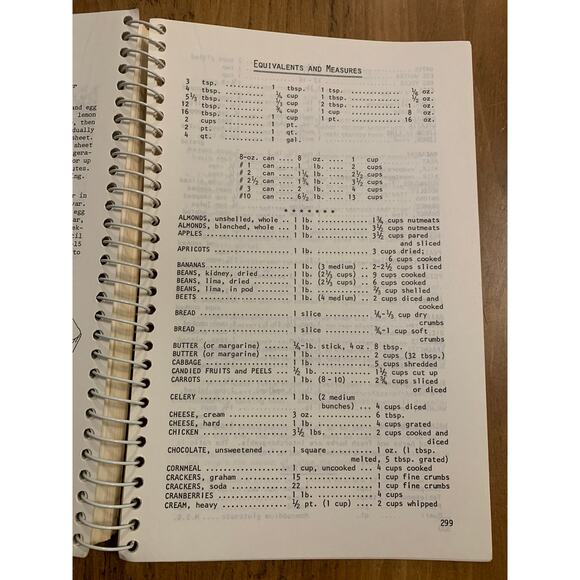 and egg
lemon
, then
dually
sheet.
sheet
gera-
or up
utes.
ing.
er in
var.
egg
ar,
ek-
cil
to
EQUIVALENTS AND MEASURES
3 tsp. .......... 1 tbsp.
4 tbsp. .......... 1/4 cup
5 1/3 tbsp. .......... 1/3 cup
12 tbsp. .......... 3/4 cup
16 tbsp. .......... 1 cup
2 cups .......... 1 pt.
2 pt. .......... 1 qt.
4 qt. .......... 1 gal.
1 tsp. .......... 1/6 oz.
1 tbsp. .......... 1/2 oz.
2 tbsp. .......... 1 oz.
1 cup .......... 8 oz.
1 pt. .......... 16 oz.
8-oz. can .... 8 oz. .... 1 cup
# 1 can .... 1 lb. .... 2 cups
# 2 can .... 1 1/4 lb. .... 2 1/2 cups
# 2 1/2 can .... 1 3/4 lb. .... 3 1/2 cups
# 3 can .... 2 lb. .... 4 cups
#10 can .... 6 1/2 lb. .... 13 cups
* * * * * * *
ALMONDS, unshelled, whole .. 1 lb. .......... 1 3/4 cups nutmeats
ALMONDS, blanched, whole ... 1 lb. .......... 3 1/2 cups nutmeats
APPLES .......... 1 lb. .......... 3 1/2 cups pared
and sliced
APRICOTS .......... 1 lb. .......... 3 cups dried;
6 cups cooked
BANANAS .......... 1 lb. (3 medium) .. 2-2 1/2 cups sliced
BEANS, kidney, dried ....... 1 lb. (2 2/3 cups) .. 9 cups cooked
BEANS, lima, dried ......... 1 lb. (2 1/3 cups) .. 6 cups cooked
BEANS, lima, in pod ........ 1 lb. .......... 2/3 cup shelled
BEETS .......... 1 lb. (4 medium) .. 2 cups diced and
cooked
BREAD .......... 1 slice .......... 1/4-1/3 cup dry
crumbs
BREAD .......... 1 slice .......... 3/4-1 cup soft
crumbs
BUTTER (or margarine) ...... 1/4-lb. stick, 4 oz. 8 tbsp.
BUTTER (or margarine) ...... 1 lb. .......... 2 cups (32 tbsp.)
CABBAGE .......... 1 lb. .......... 5 cups shredded
CANDIED FRUITS and PEELS ... 1/2 lb. .......... 1 1/2 cups cut up
CARROTS .......... 1 lb. (8-10) ..... 2 3/4 cups sliced
or diced
CELERY .......... 1 lb. (2 medium
bunches) ... 4 cups diced
CHEESE, cream .......... 3 oz. .......... 6 tbsp.
CHEESE, hard .......... 1 lb. .......... 4 cups grated
CHICKEN .......... 3 1/2 lbs. .......... 2 cups cooked and
diced
CHOCOLATE, unsweetened ..... 1 square .......... 1 oz. (1 tbsp.
melted, 5 tbsp. grated)
CORNMEAL .......... 1 cup, uncooked ... 4 cups cooked
CRACKERS, graham .......... 15 .......... 1 cup fine crumbs
CRACKERS, soda .......... 22 .......... 1 cup fine crumbs
CRANBERRIES .......... 1 lb. .......... 4 cups
CREAM, heavy .......... 1/2 pt. (1 cup) ... 2 cups whipped
299